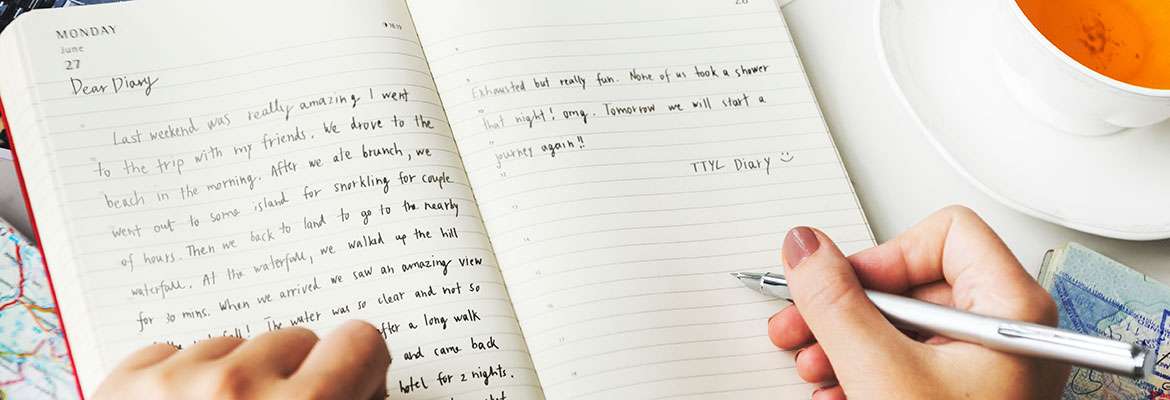 MONDAY
June
27
Dear Diary
Last weekend was really amazing I went
to the trip with my friends. We drove to the
beach in the morning. After we ate brunch, we
went out to some island for snorkling for couple
of hours. Then we back to land to go to the nearby
waterfall. At the waterfall, we walked up the hill
for 30 mins. When we arrived we saw an amazing view
The water was so clear and not so
after a long walk
and came back
hotel for 2 nights.
28
Exhausted but really fun. None of us took a shower
that night! omg. Tomorrow we will start a
journey again!!
TTYL Diary